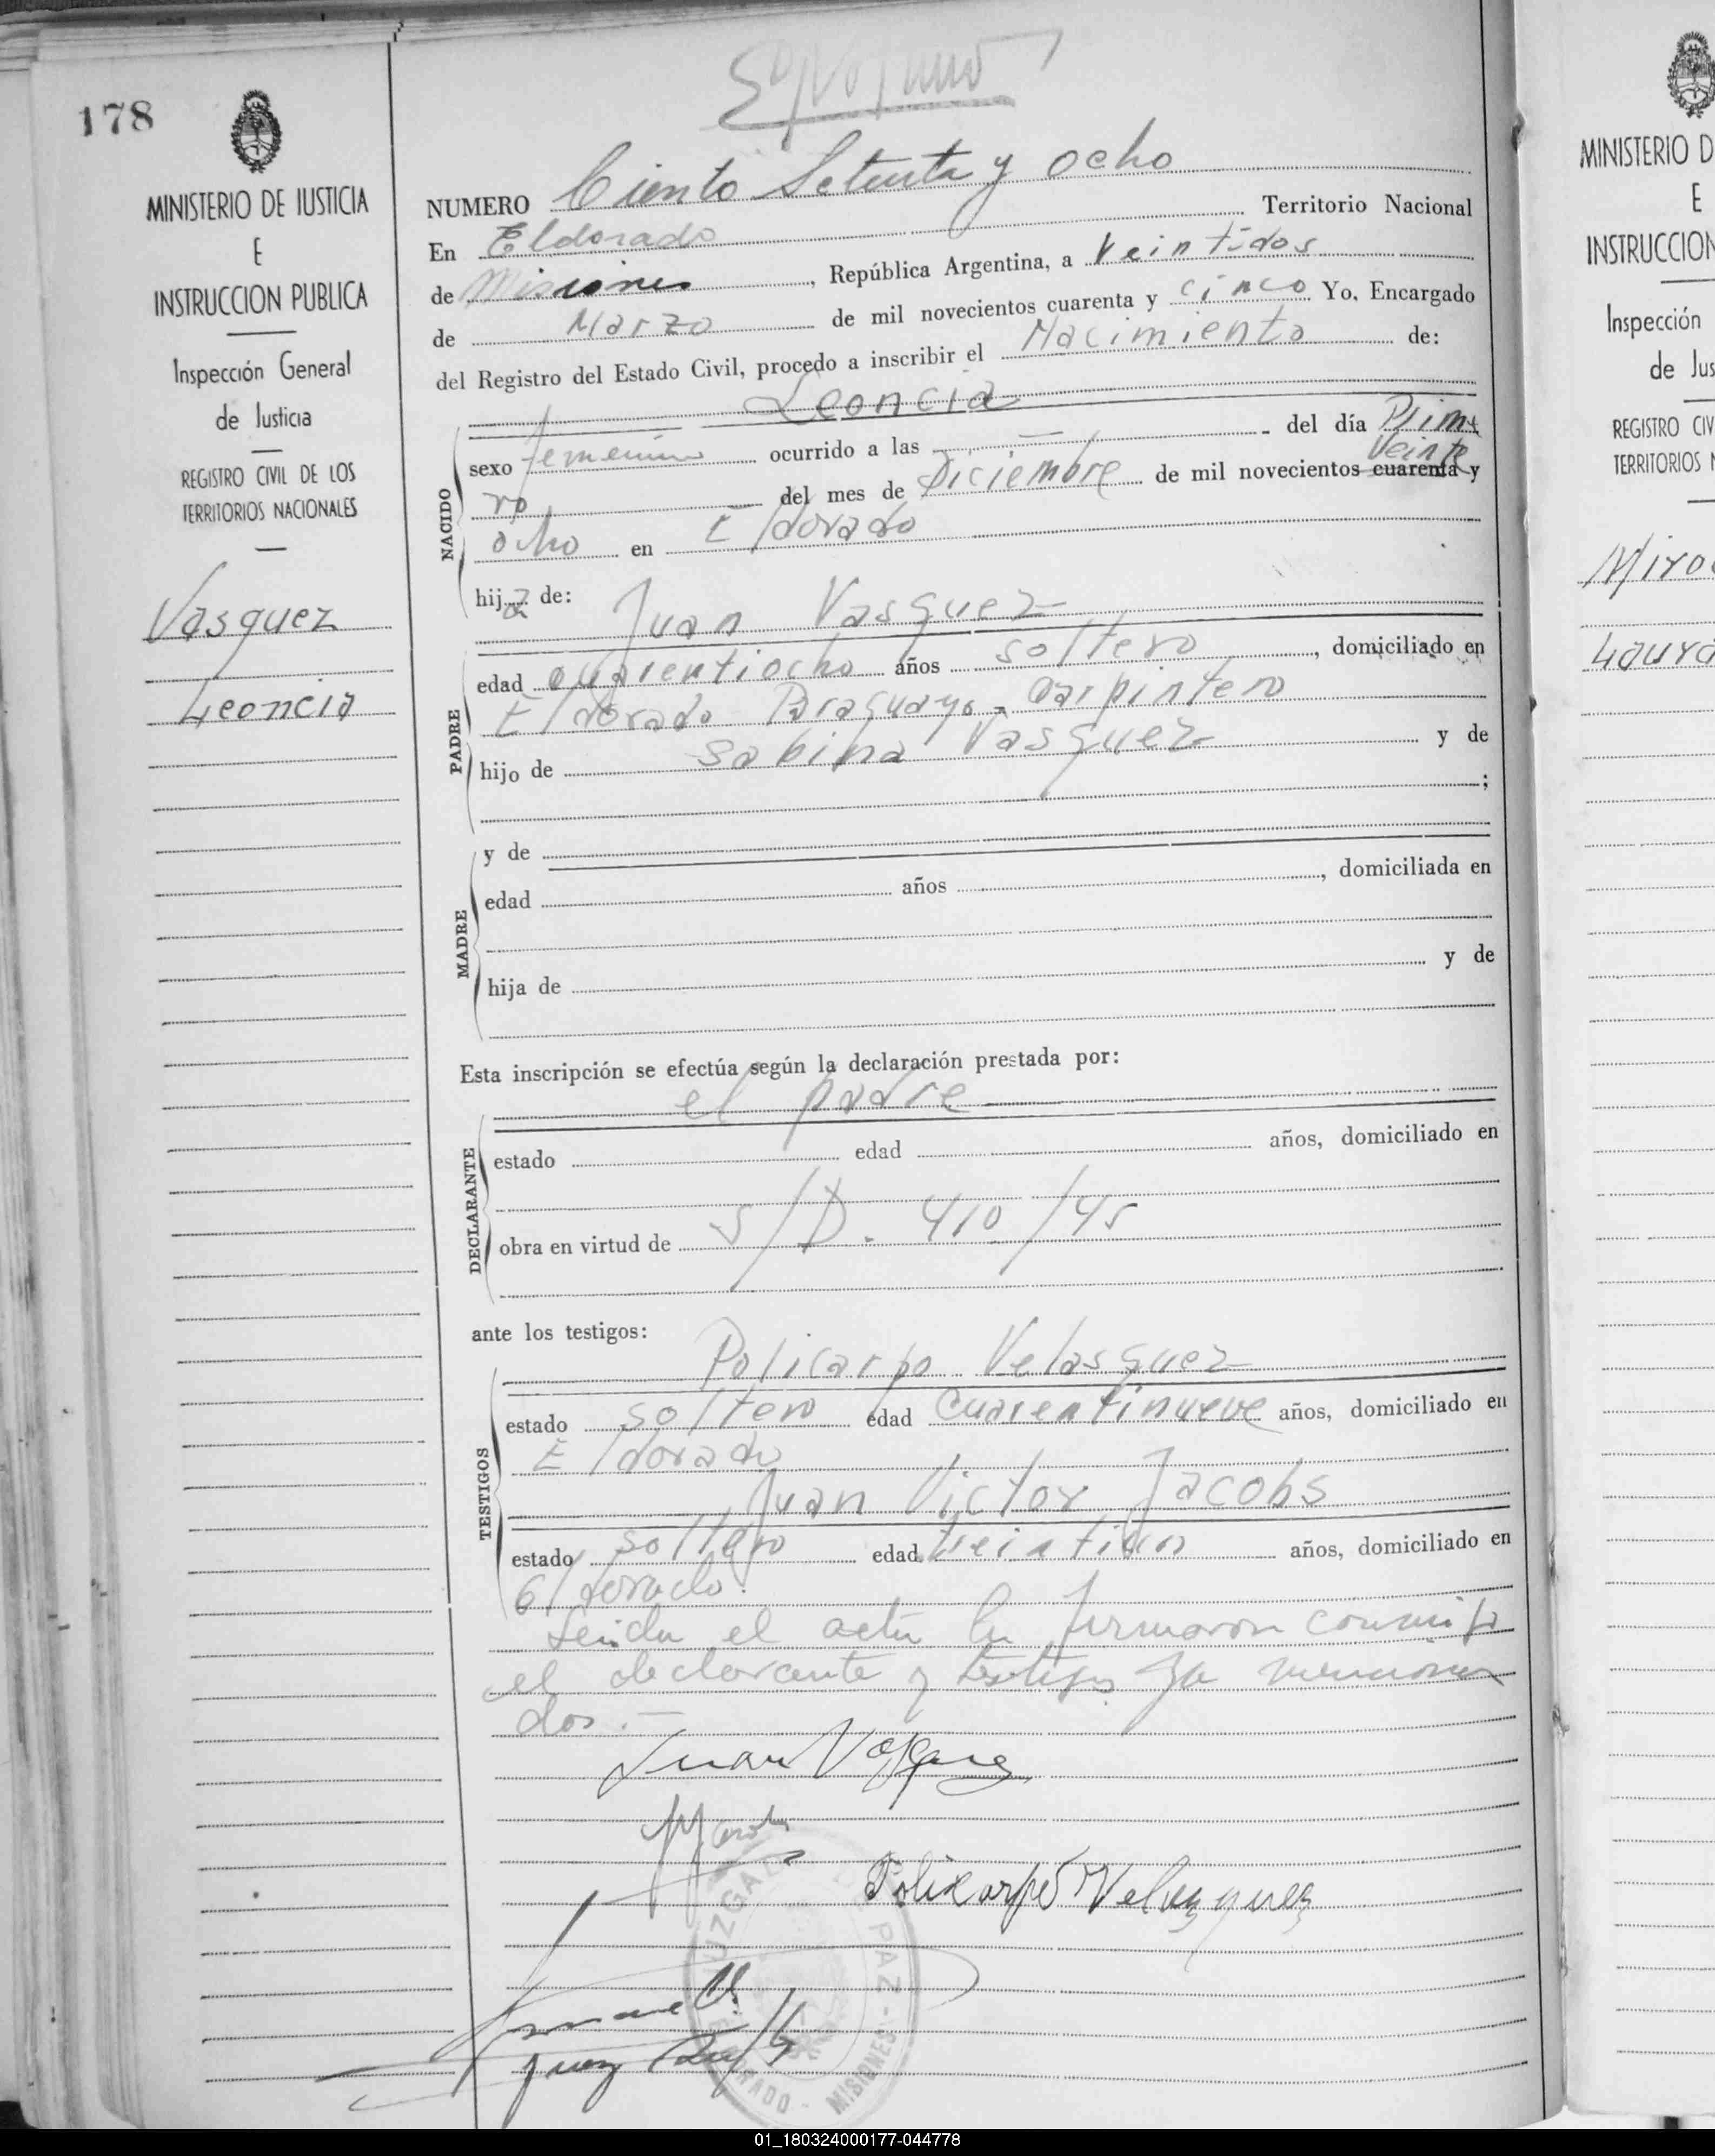 178
MINISTERIO DE JUSTICIA
E
INSTRUCCION PUBLICA
Inspección General
de Justicia
REGISTRO CIVIL DE LOS
TERRITORIOS NACIONALES
Vasquez
Leoncia
NUMERO Ciento Setenta y ocho
En Eldorado Territorio Nacional
de Misiones, República Argentina, a Veintidos
de Marzo de mil novecientos cuarenta y cinco Yo, Encargado
del Registro del Estado Civil, procedo a inscribir el Nacimiento de:
Leoncia
NACIDO
sexo femenino ocurrido a las — del día Prime
ro del mes de Diciembre de mil novecientos cuarenta Veinte y
ocho en Eldorado
hija de:
Juan Vasquez
PADRE
edad cuarentiocho años soltero, domiciliado en
Eldorado Paraguayo - Carpintero
hijo de Sabina Vasquez y de
;
MADRE
y de
edad años , domiciliada en
hija de y de
Esta inscripción se efectúa según la declaración prestada por:
el padre
DECLARANTE
estado edad años, domiciliado en
obra en virtud de S/D. 410/45
ante los testigos:
Policarpo Velasquez
TESTIGOS
estado soltero edad cuarentinueve años, domiciliado en
Eldorado
Juan Victor Jacobs
estado soltero edad veintiun años, domiciliado en
Eldorado.
Leida el acta la firmaron conmigo
el declarante y testigos ya menciona
dos.-
Juan Vasquez
Policarpo Velazquez
JUZGADO DE PAZ - MISIONES
ELDORADO -
MINISTERIO D
E
INSTRUCCION
Inspección
de Jus
REGISTRO CIV
TERRITORIOS N
Miro
Laura
01_180324000177-044778